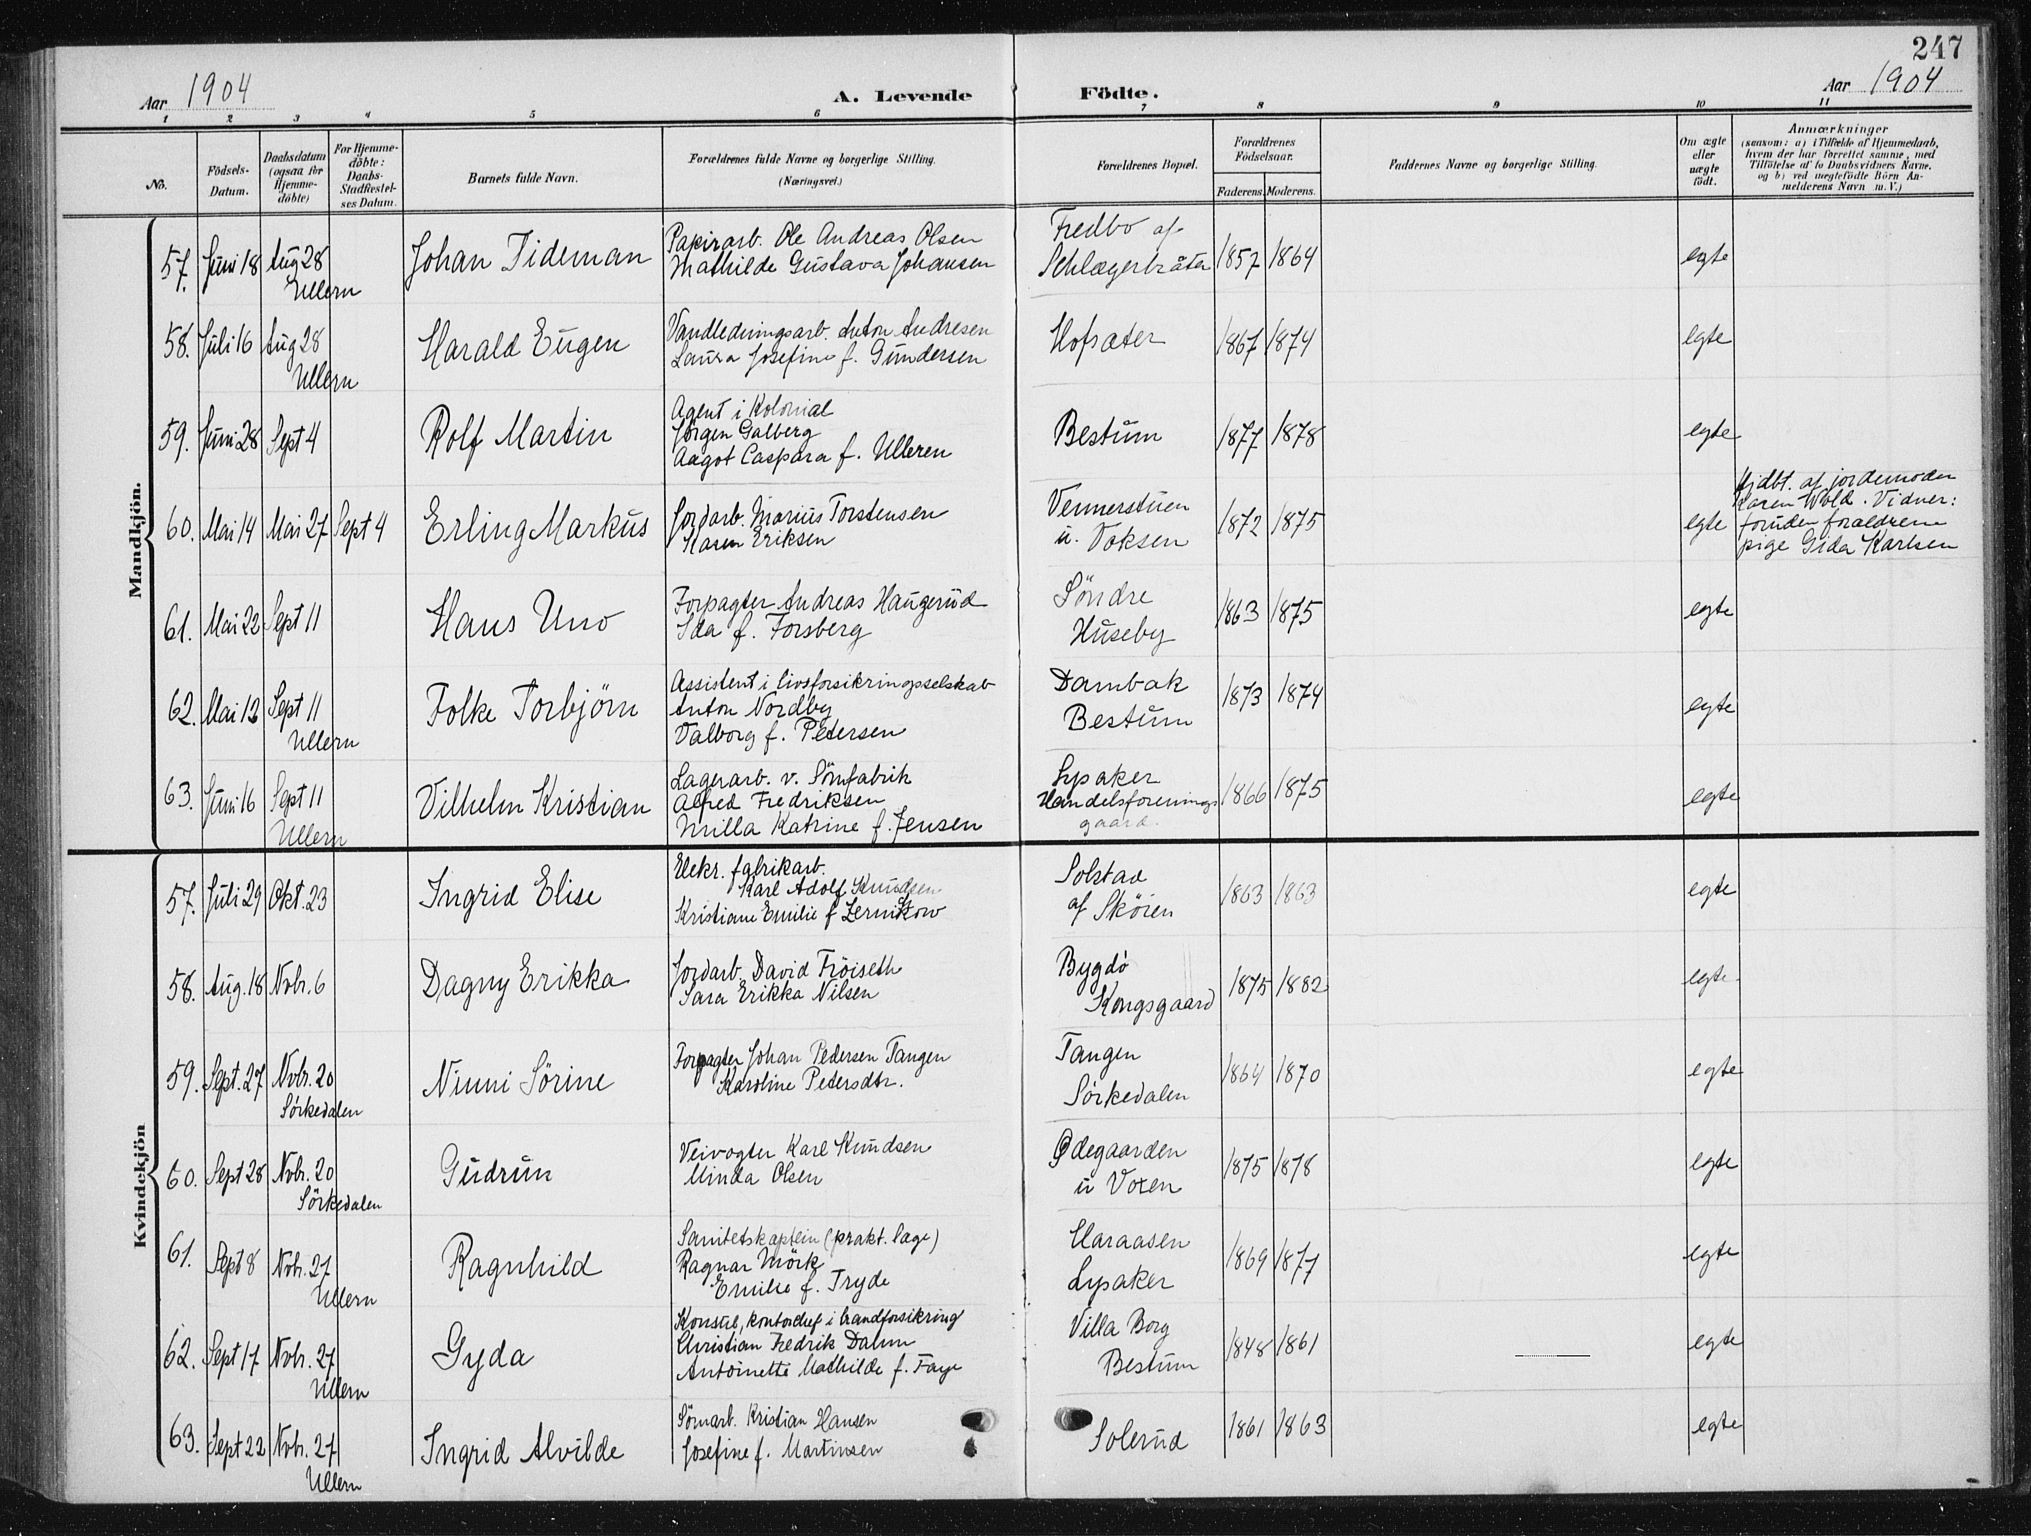 247
Aar 1904
A. Levende Födte.
Aar 1904
1 2 3 4 5 6 7 8 9 10 11
No.
Födsels-
Datum.
Daabsdatum
(ogsaa for
Hjemme-
döbte)
For Hjemme-
döbte:
Daabs-
Stadfæstel-
ses Datum.
Barnets fulde Navn.
Forældrenes fulde Navne og borgerlige Stilling.
(Næringsvei.)
Forældrenes Bopæl.
Forældrenes
Födselsaar.
Faderens. Moderens.
Faddernes Navne og borgerlige Stilling.
Om ægte
eller
uægte
födt.
Anmærkninger
(saasom: a) i Tilfælde af Hjemmedaab,
hvem der har forrettet samme, med
Tilföielse af to Daabsvidners Navne.
og b) ved uægtefödte Börn An-
melderens Navn m. V.)
Mandkjön.
57. Juni 18 Aug 28 Ullern
Johan Tideman
Papirarb. Ole Andreas Olsen
Mathilde Gustava Johansen
Fredbo af
Schlægerbråten
1857 1864
egte
58. Juli 16 Aug 28 Ullern
Harald Eugen
Vandledningsarb. Anton Andresen
Laura Josefine f. Gundersen
Hofsæter
1867 1874
egte
59. Juni 28 Sept 4
Rolf Martin
Agent i Kolonial
Jörgen Galberg
Aagot Caspara f. Ulleren
Bestum
1877 1878
egte
60. Mai 14 Mai 27 Sept 4
Erling Markus
Jordarb. Marius Torstensen
Karen Eriksen
Vennerstuen
u. Voksen
1872 1875
egte
Hjdbt. af jordemoder
Karen Wold. Vidner:
foruden forældrene
pige Gida Karlsen
61. Mai 22 Sept 11
Hans Uno
Forpagter Andreas Haugerud
Ida f. Forsberg
Söndre
Huseby
1863 1875
egte
62. Mai 12 Sept 11 Ullern
Folke Torbjörn
Assistent i livsforsikringsselskab
Anton Nordby
Valborg f. Petersen
Dambak
Bestum
1873 1874
egte
63. Juni 16 Sept 11 Ullern
Vilhelm Kristian
Lagerarb. v. Sömfabrik
Alfred Fredriksen
Milla Katrine f. Jensen
Lysaker
Handelsforenings
gaard.
1866 1875
egte
Kvindekjön
57. Juli 29 Okt. 23
Ingrid Elise
Elekr. fabrikarb.
Karl Adolf Knudsen
Kristiane Emilie f Zernikow
Solstad
af Skören
1863 1863
egte
58. Aug. 18 Novbr. 6
Dagny Erikka
Jordarb. David Fröiseth
Sara Erikka Nilsen
Bygdö
Kongsgaard
1875 1882
egte
59. Sept. 27 Novbr. 20 Sörkedalen
Ninni Sörine
Forpagter Johan Pedersen Tangen
Karoline Pedersdtr.
Tangen
Sörkedalen
1864 1870
egte
60. Sept 28 Novbr. 20 Sörkedalen
Gudrun
Veivogter Karl Knudsen
Minda Olsen
Ödegaarden
u Voxen
1875 1878
egte
61. Sept 8 Novbr. 27 Ullern
Ragnhild
Sanitetskaptein (prakt. læge)
Ragnar Mörk
Emilie f. Tryde
Haraasen
Lysaker
1869 1877
egte
62. Sept 17 Novbr. 27 Ullern
Gyda
Konsul, kontorchef i brandforsikring
Christian Fredrik Dahm
Antoinette Mathilde f. Faye
Villa Borg
Bestum
1848 1861
egte
63. Sept 22 Novbr. 27 Ullern
Ingrid Alvilde
Sömarb. Kristian Hansen
Josefine f. Martinsen
Solerud
1861 1863
egte